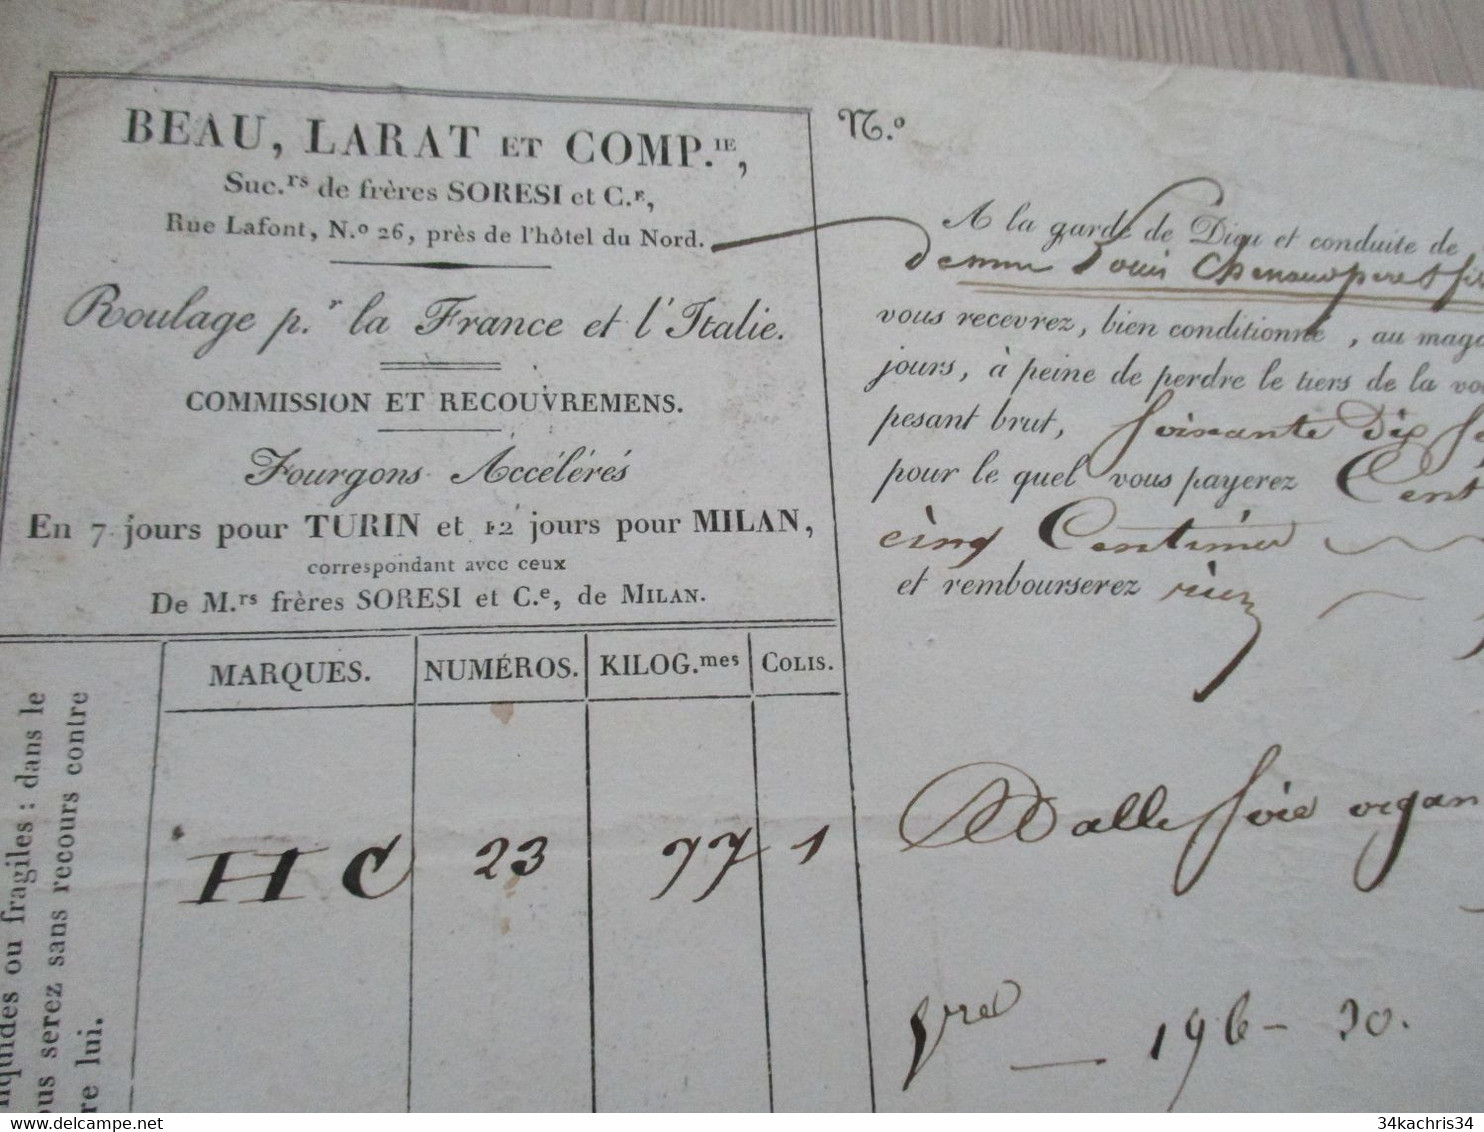 BEAU, LARAT ET COMP.IE,
Suc.rs de frères SORESI et C.E,
Rue Lafont, N.o 26, près de l'hôtel du Nord.
Roulage p.r la France et l'Italie.
COMMISSION ET RECOUVREMENS.
Fourgons Accélérés
En 7 jours pour TURIN et 12 jours pour MILAN,
correspondant avec ceux
De M.rs frères SORESI et C.e, de MILAN.
MARQUES. NUMÉROS. KILOG.mes COLIS.
HC 23 77 1
quides ou fragiles : dans le
ous serez sans recours contre
re lui.
N.o
A la garde de Dieu et conduite de
Louis
vous recevrez, bien conditionné, au maga
jours, à peine de perdre le tiers de la vo
pesant brut, soixante dix se
pour le quel vous payerez Cent
cinq Centimes
et rembourserez rien
Balle soie organ
196-30.
34kachris34